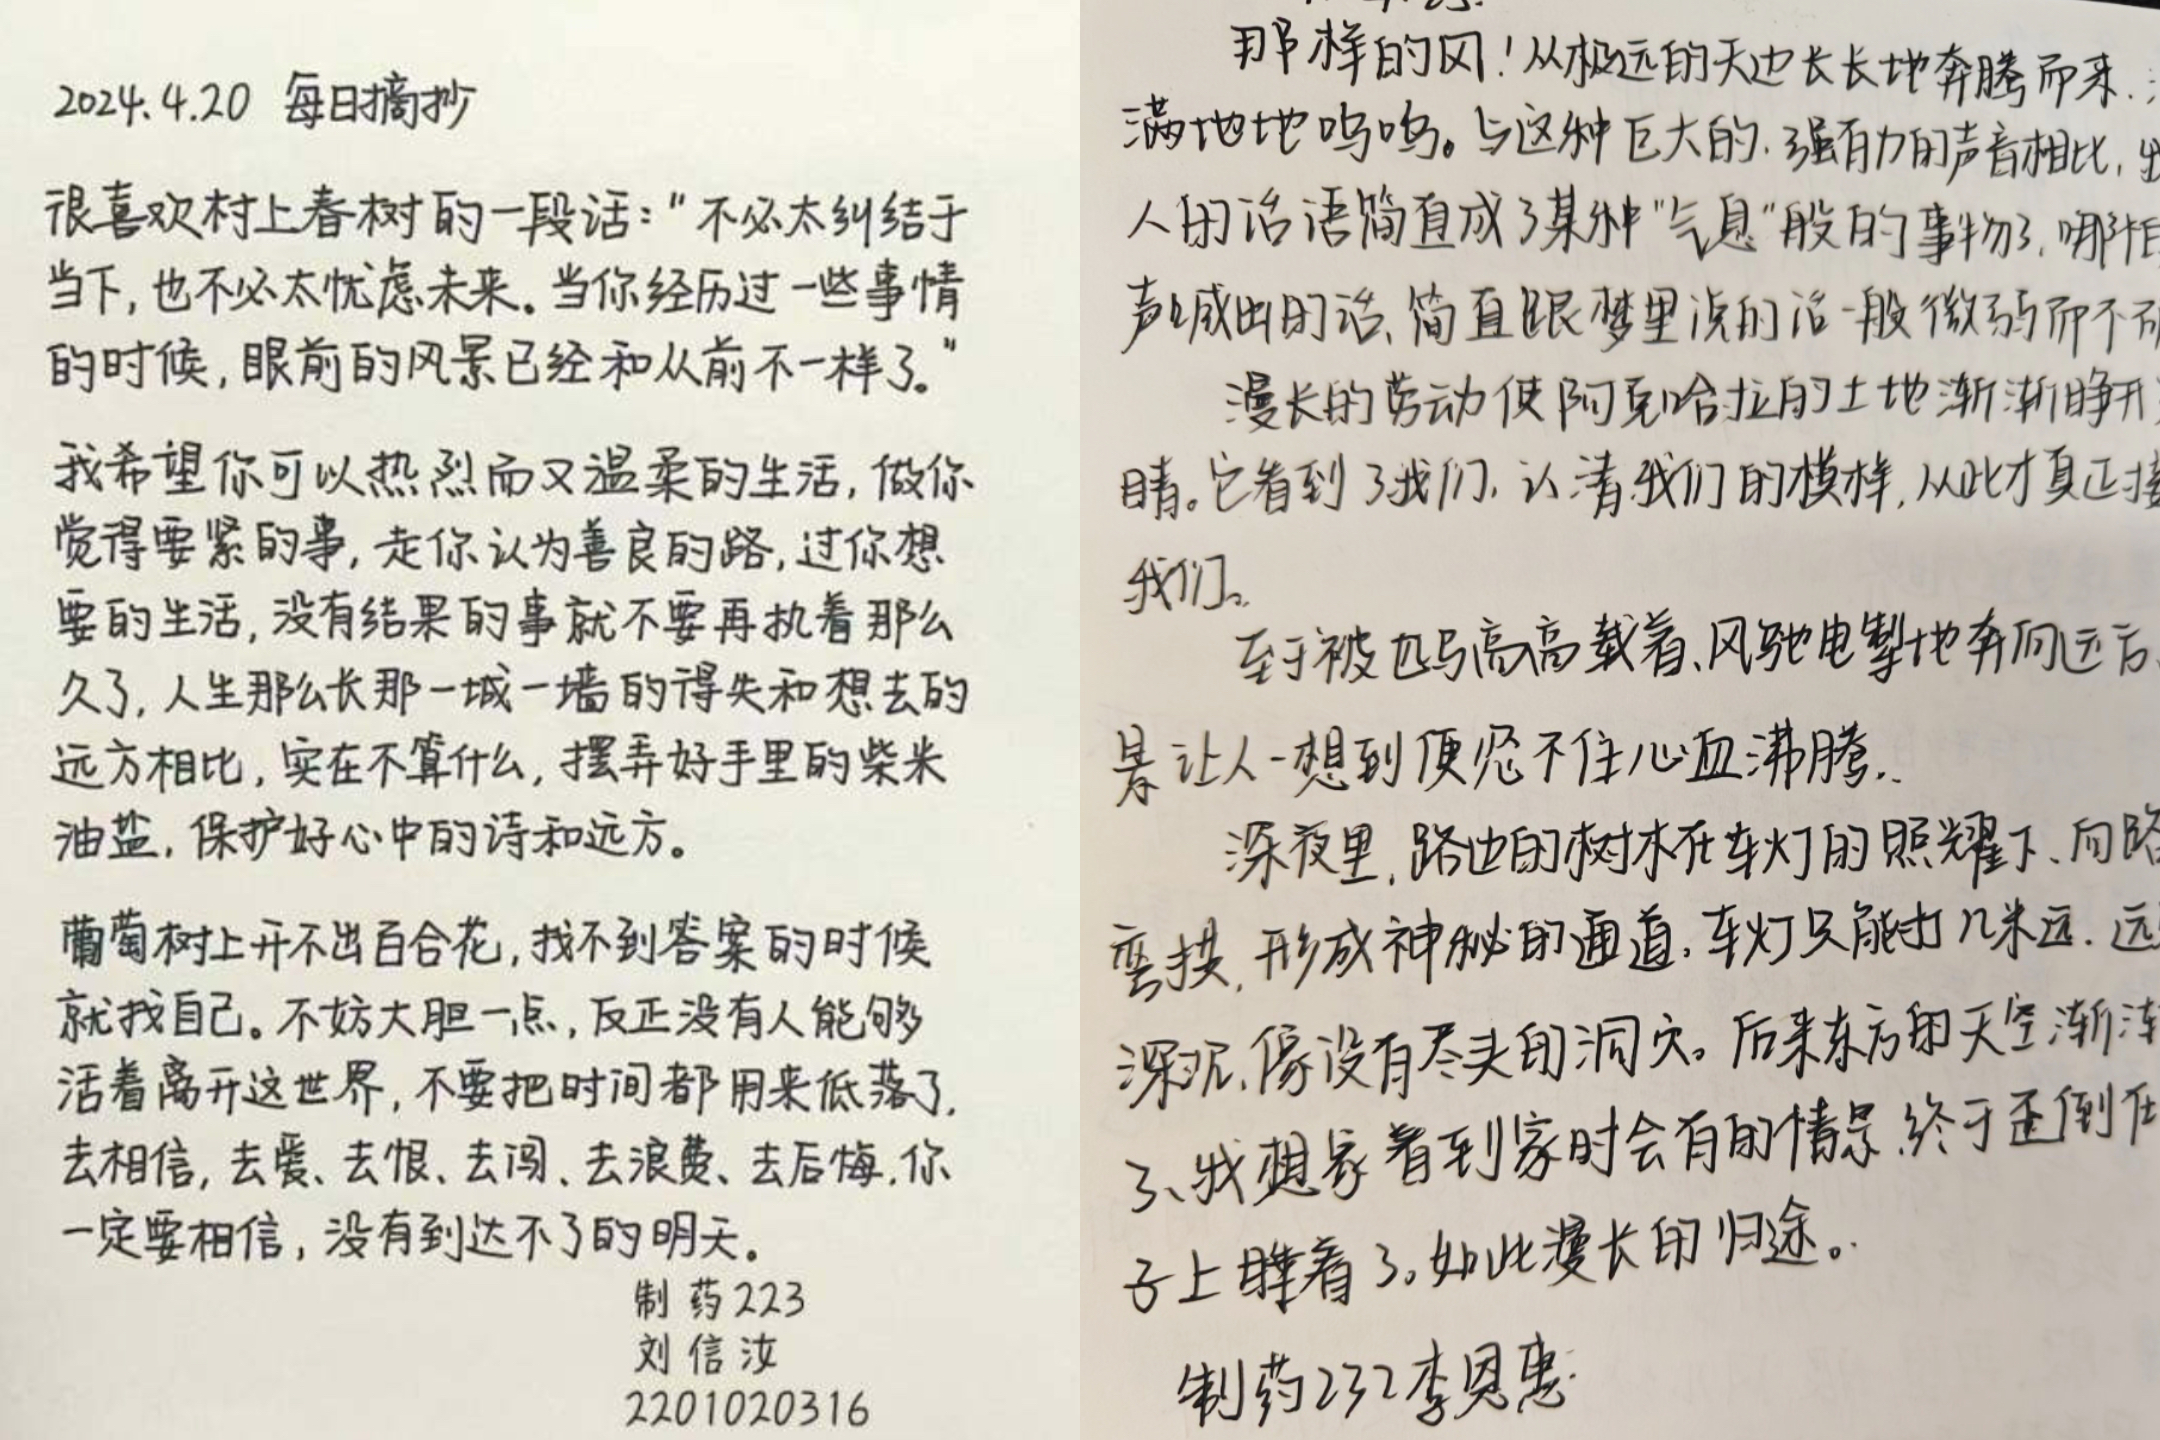 2024.4.20 每日摘抄
很喜欢村上春树的一段话:"不必太纠结于
当下,也不必太忧虑未来。当你经历过一些事情
的时候,眼前的风景已经和从前不一样了。"
我希望你可以热烈而又温柔的生活,做你
觉得要紧的事,走你认为善良的路,过你想
要的生活,没有结果的事就不要再执着那么
久了,人生那么长那一城一墙的得失和想去的
远方相比,实在不算什么,摆弄好手里的柴米
油盐,保护好心中的诗和远方。
葡萄树上开不出百合花,找不到答案的时候
就找自己。不妨大胆一点,反正没有人能够
活着离开这世界,不要把时间都用来低落了,
去相信,去爱、去恨、去闯、去浪费、去后悔,你
一定要相信,没有到达不了的明天。
制药223
刘信汝
2201020316
那样的风!从极远的天边长长地奔腾而来.
满地地呜呜。与这种巨大的.强有力的声音相比,
人的话语简直成了某种"气息"般的事物了,哪怕
声喊出的话、简直跟梦里说的话一般微弱而不
漫长的劳动使阿克哈拉的土地渐渐睁开
睛。它看到了我们,认清我们的模样,从此才真正接
我们。
至于被匹马高高载着、风驰电掣地奔向远方
是让人一想到便忍不住心血沸腾.
深夜里,路边的树木在车灯的照耀下、向路
弯拱,形成神秘的通道,车灯只能打几米远.远
深沉,像没有尽头的洞穴。后来东方的天空渐渐
了、我想家看到家时会有的情景,终于歪倒在
子上睡着了。如此漫长的归途。
制药232李恩惠